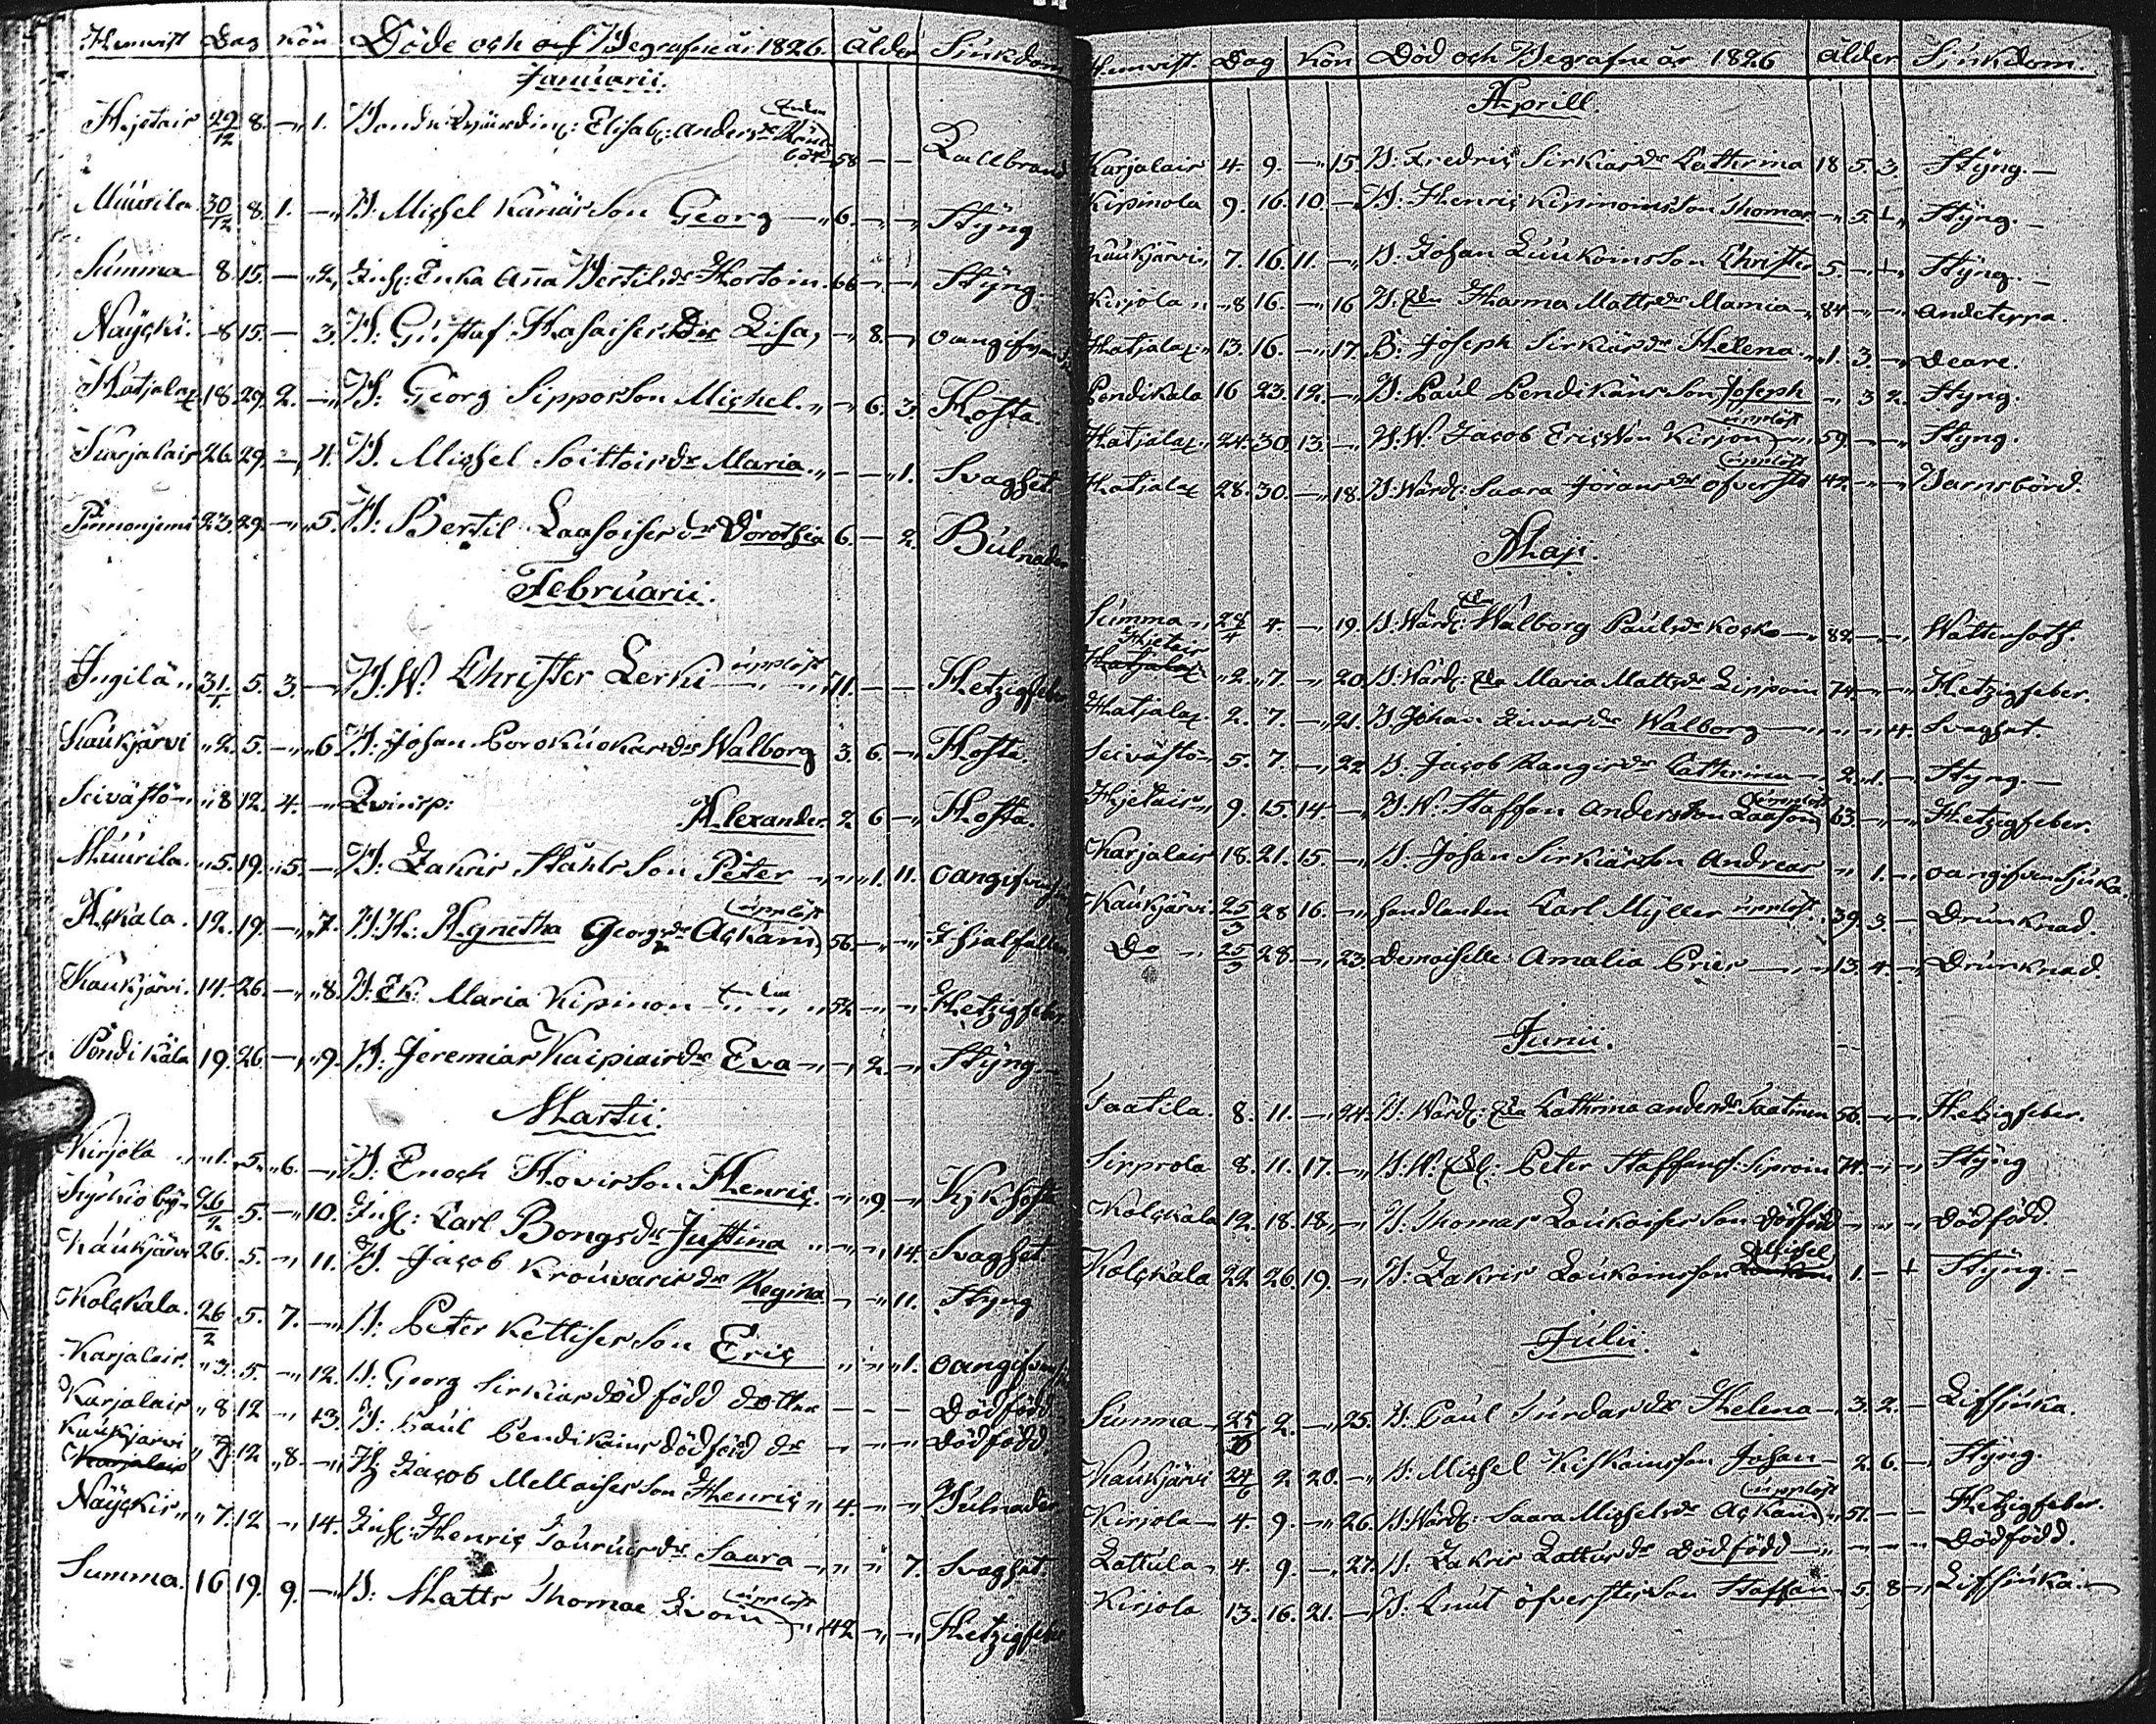 Hemvist Dag Kön Döde och Begrafne år 1826. Ålder Sjukdom
Januarii.
Hjetais 29/12 8. -„ 1. Bonde Elisab: Anders dr 58 - - Kallbrand
Muurila 30/12 8. 1. -„ B: Michel Känäs Son Georg -„ 6. -„ -„ Styng
Summa 8 15. - „2. Inh: Enka Anna Bertils dr Hortoin. 66 -„ -„ Styng
Näycki. 8 15. - 3. B: Gustaf Hasaises Dr Lisa, -„ 8. -„ oangifven
Hatjalax. 18. 29. 2. -„ B: Georg Sippos Son Michel. „ -„ 6. 3. Hosta.
Karjalais 26. 29. -„ 4. B. Michel Soittois dr Maria. „ - -„ 1. Svaghet.
Pinnonjemi 23. 29. -„ „5. B: Bertil Laasoises dr Dorothea 6. - 2. Bulnader
Februarii.
Ingilä „ 31/1. 5. 3. -„ B.W. Christer Lerki upplöst -„ 71. - - Hetzigfeber
Kaukjärvi „2. 5. -„ „6 B: Johan Porokuokas dr Walborg 3. 6 -„ Hosta.
Seivästö -„ „8 12. 4. -„ Qvinsp: Alexander. 2 6 -„ Hosta.
Muurila. „5. 19. „5. -„ B: Zakris Ståhls Son Peter -„ „ 1. 11. oangifven sjuka
Ackala. 12. 19. -„ „7. B.H: Agnetha Georgs dr Ackain upplöst 56. -„ -„ Ihjälfallen
Kaukjärvi. 14. 26. -„ „8. B: Ek: Maria Kipinon 52 -„ -„ Hetzigfeber
Pendikälä 19. 26. -„ „9. B: Jeremias Kaipiais dr Eva -„ -„ 2. -„ Styng
Martii.
Kirjola „1. „5. „6. -„ B: Enoch Hovis Son Henric. -„ „9 -„ Kjkhosta
Kyrkioby 26/2 5. -„ 10. Inh: Carl Bongs dr Justina „ -„ -„ 14. Svaghet
Kaukjärvi 26. 5. -„ 11. B. Jacob Krouvaris dr Regina - „ 11. Styng
Kolckala. 26/2 5. 7. -„ B: Peter Kettises Son Eric „ „ „ 1. oangifven
Karjalais. „3. 5. -„ 12. B: Georg Sirkias död född dotter - - - Dödfödd
Karjalais „8 12 -„ 13. B: Paul Pendikains dödföd dr -„ -„ -„ Dödfödd
Kaukjärvi
Karjalais „ 7 12 „8. -„ B Jacob Mellaises Son Henric „ 4. -„ -„ Bulnader
Näyckis „ „7. 12 -„ 14. Inh: Henric Tauruis dr Saara -„ „ „ 7. Svaghet.
Summa. 16 19. 9. -„ B: Matts Thomae Ivoin upplöst -„ 42 -„ -„ Hetzigfeber
Hemvist. Dag Kön Död och Begrafne år 1826 Ålder Sjukdom.
Aprill.
Karjalais 4. 9. -„ 15. B: Fredric Sirkias dr Cathrina 18 5. 3. Styng. -
Kipinola 9. 16. 10. -„ B: Henric Kipinoins Son Thomas -„ 5. 1 „ Styng. -
Kaukjärvi „ 7. 16. 11. -„ B: Johan Luukoins Son Christer 5. -„ „ Styng. -
Kirjola „ „8 16. -„ 16 B. Hanna Matts dr Mamia -„ 84 -„ -„ Andeteppa.
Hatjalax „ 13. 16. -„ 17. B: Joseph Sirkiäs dr Helena „ „1. 3. -„ Deare.
Pendikälä 16 23. 12. -„ B: Paul Pendikäns Son Joseph -„ 3 2. Styng.
Hatjalax „ 24. 30. 13. -„ B.W. Jacob Ericsson Kirjon upplöst -„ 59. -„ -„ Styng.
Hatjalax 28. 30. -„ 18. B: Wärd: Saara Jörans dr öfversta upplöst 42. -„ -„ Barnsbörd.
Maji.
Summa -„ 28/4 4. -„ 19. B. Wärd: Walborg Pauls dr Kocko -„ 82. -„ -„ Wattensott.
Hjetais
Hatjalax „2. „7. -„ 20. B: Wärd: Maria Matts dr Lippoin 74. -„ -„ Hetzigfeber.
Hatjalax. 2. 7. -„ 21. B Johan dr Walborg -„ „ „ 4. Svaghet.
Seivästö -„ 5. 7. -„ 22 B. Jacob Rangis dr Cathrina -„ 2. 1. -„ Styng. -
Hjetais „ 9. 15. 14. -„ B.W. Staffan Andersson Laason upplöst 63. -„ -„ Hetzigfeber.
Karjalais 18. 21. 15. -„ B. Johan Sirkiäs Son Andreas „ 1. -„ oangifven sjuka.
Kaukjärvi 25/3 28 16. -„ Handlanden Carl Myller upplöst. 39. 3 - Drunknad.
Do -„ 25/3 28. -„ 23 Demoiselle Amalia Pries -„ -„ 13. 4. -„ Drunknad.
Junii.
Taatila. 8. 11. -„ 24. B. Wärd: Cathrina Anders dr Taatinen 56. -„ -„ Hetzigfeber.
Sipprola 8. 11. 17. -„ B.W. Peter Staffans: Siproin 74. -„ -„ Styng
Kolckala 12. 18. 18. -„ B: Thomas Loukaises Son Dödföd -„ -„ -„ Dödfödd.
Kolckala 22. 26. 19. -„ B: Zakris Loukoins Son Michel 1. - 1 Styng. -
Julii.
Summa -„ 25/6 2. -„ 25. B. Paul Surdas dr Helena -„ 3. 2. - Lifsjuka.
Kaukjärvi 24/6 2 20. -„ B: Michel Kiskains Son Johan - 2. 6. -„ Styng.
Kirjola -„ 4. 9. -„ 26. B. Wärd: Saara Michels dr Ackain upplöst 57. - - Hetzigfeber.
Lattula -„ 4. 9. -„ 27. B. Zakris Lattus dr Dödfödd -„ -„ -„ -„ Dödfödd.
Kirjola 13. 16. 21. -„ B. Knut öfversters Son Staffan 5. 8 -„ Lifsjuka.